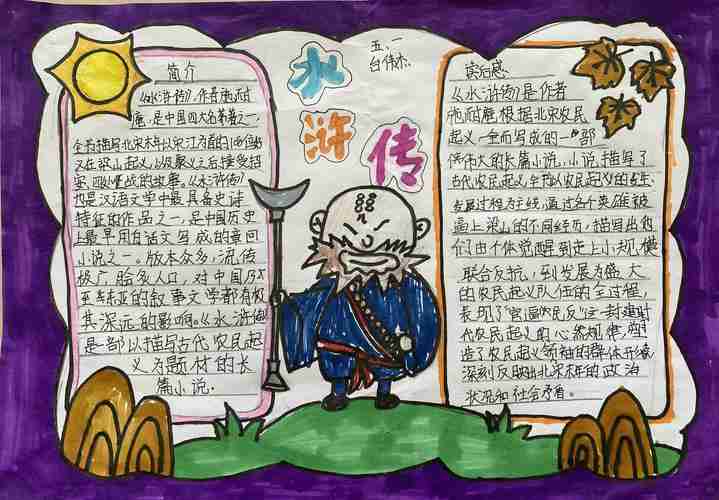 水
浒
传
五、一
台伟杰
简介
《水浒传》,作者施耐
庵,是中国四大名著之一,
全书描写北宋末年以宋江为首的108位好汉
又在梁山起义,以及聚义之后接受招
安,四处征战的故事。《水浒传》
也是汉语文学中最具备史诗
特征的作品之一,是中国历史
上最早用白话文写成的章回
小说之一。版本众多,流传
极广,脍炙人口,对中国乃
至东亚的叙事文学都有极
其深远的影响。《水浒传》
是部以描写古代农民起
义为题材的长
篇小说.
读后感
《水浒传》是作者
施耐庵根据北宋农民
起义一全而写成的一部
伟大的长篇小说,小说描写了
古代农民起义全书以农民起义的发生
发展过程为主线,通过各个英雄被
逼上梁山的不同经历,描写出他
们由个体觉醒到走上小规模
联合反抗,到发展为盛大
的农民起义队伍的全过程,
表现了“官逼民反”这一封建时
代农民起义的必然规律,塑
造了农民起义领袖的群体形象
深刻反映出北宋末年的政治
状况和社会矛盾。